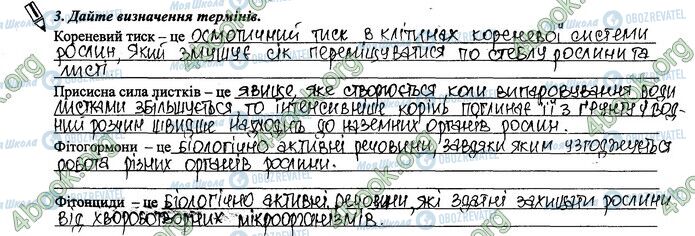 3. Дайте визначення термінів.
Кореневий тиск – це осмотичний тиск в клітинах кореневої системи
рослин, який змушує сік переміщуватися по стеблу рослини та
листі.
Присисна сила листків – це явище, яке створюється коли випаровування води
листками збільшується, то інтенсивніше корінь поглинає її з ґрунту і вод-
ний розчин швидше надходить до наземних органів рослин.
Фітогормони – це біологічно активні речовини, завдяки яким узгоджується
робота різних органів рослини.
Фітонциди – це біологічно активні речовини, які здатні захищати рослини
від хвороботворних мікроорганізмів.